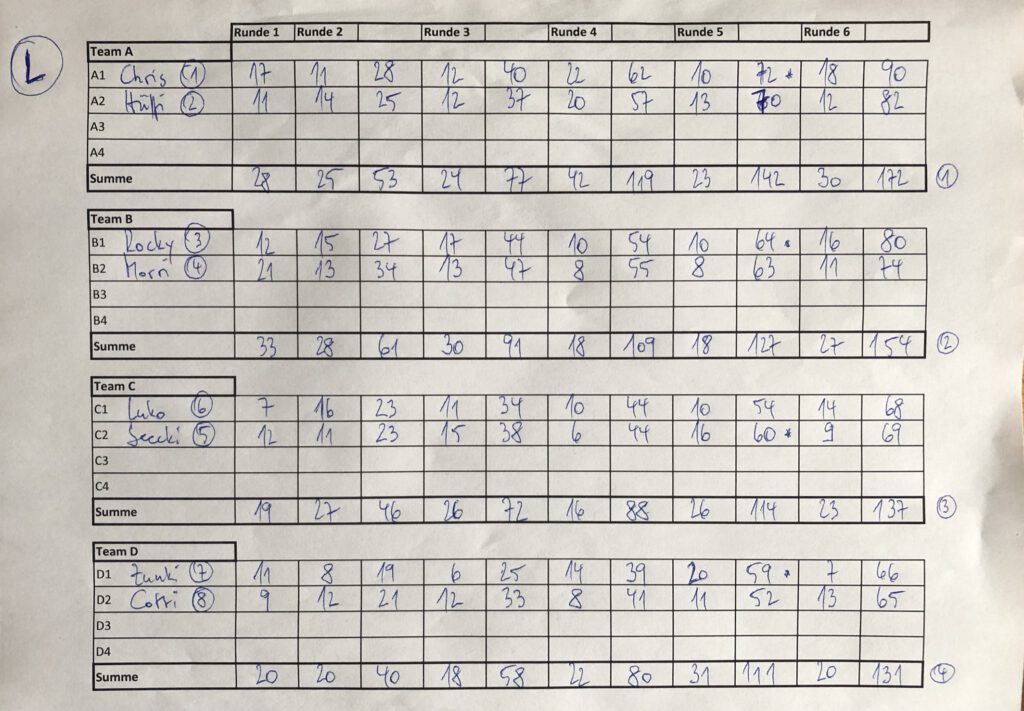 L
Runde 1 Runde 2 Runde 3 Runde 4 Runde 5 Runde 6
Team A
A1 Chris 1 17 11 28 12 40 22 62 10 72 * 18 90
A2 2 11 14 25 12 37 20 57 13 70 12 82
A3
A4
Summe 28 25 53 24 77 42 119 23 142 30 172 1
Team B
B1 Rocky 3 12 15 27 17 44 10 54 10 64 * 16 80
B2 Morri 4 21 13 34 13 47 8 55 8 63 11 74
B3
B4
Summe 33 28 61 30 91 18 109 18 127 27 154 2
Team C
C1 Luko 6 7 16 23 11 34 10 44 10 54 14 68
C2 5 12 11 23 15 38 6 44 16 60 * 9 69
C3
C4
Summe 19 27 46 26 72 16 88 26 114 23 137 3
Team D
D1 7 11 8 19 6 25 14 39 20 59 * 7 66
D2 8 9 12 21 12 33 8 41 11 52 13 65
D3
D4
Summe 20 20 40 18 58 22 80 31 111 20 131 4